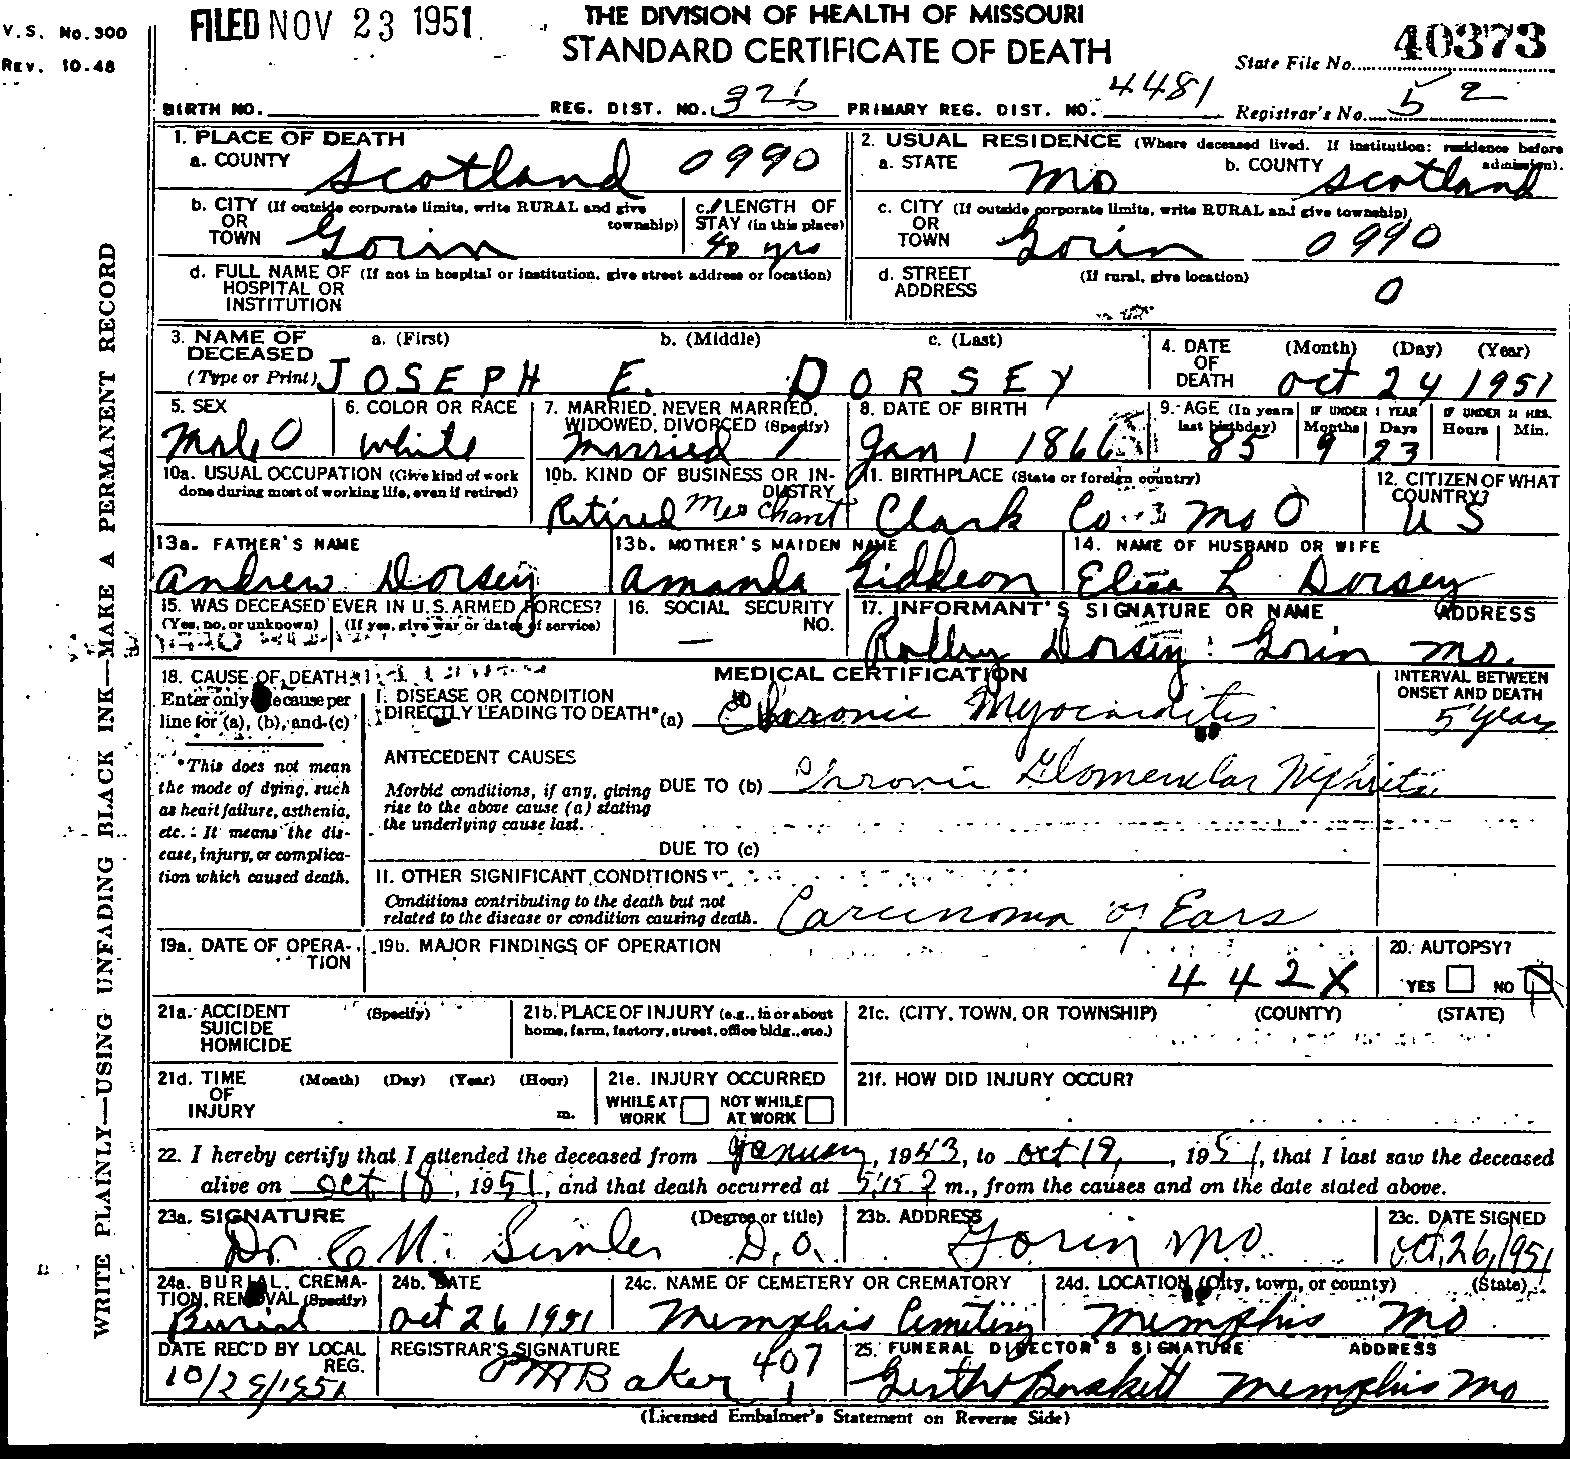 V.S. No. 300
REV. 10-48
FILED NOV 23 1951
THE DIVISION OF HEALTH OF MISSOURI
STANDARD CERTIFICATE OF DEATH
State File No. 40373
BIRTH NO. REG. DIST. NO. PRIMARY REG. DIST. NO. 4481 Registrar's No. 52
WRITE PLAINLY—USING UNFADING BLACK INK—MAKE A PERMANENT RECORD
1. PLACE OF DEATH
a. COUNTY Scotland 0990
2. USUAL RESIDENCE (Where deceased lived. If institution: residence before admission).
a. STATE Mo b. COUNTY Scotland
b. CITY (If outside corporate limits, write RURAL and give township) OR TOWN Gorin
c. LENGTH OF STAY (in this place) 40 yrs
c. CITY (If outside corporate limits, write RURAL and give township) OR TOWN Gorin 0990
d. FULL NAME OF (If not in hospital or institution, give street address or location) HOSPITAL OR INSTITUTION
d. STREET ADDRESS (If rural, give location) 0
3. NAME OF DECEASED (Type or Print) a. (First) b. (Middle) c. (Last)
JOSEPH E. DORSEY
4. DATE OF DEATH (Month) (Day) (Year)
Oct 24 1951
5. SEX Male 0
6. COLOR OR RACE White
7. MARRIED, NEVER MARRIED, WIDOWED, DIVORCED (Specify) Married 1
8. DATE OF BIRTH Jan 1 1866
9. AGE (In years last birthday) 85 IF UNDER 1 YEAR Months 9 Days 23 IF UNDER 24 HRS. Hours Min.
10a. USUAL OCCUPATION (Give kind of work done during most of working life, even if retired)
10b. KIND OF BUSINESS OR INDUSTRY Retired Merchant
11. BIRTHPLACE (State or foreign country) Clark Co Mo 0
12. CITIZEN OF WHAT COUNTRY? U S
13a. FATHER'S NAME Andrew Dorsey
13b. MOTHER'S MAIDEN NAME Amanda Giddeon
14. NAME OF HUSBAND OR WIFE Eliza L Dorsey
15. WAS DECEASED EVER IN U.S. ARMED FORCES? (Yes, no, or unknown) (If yes, give war or dates of service)
16. SOCIAL SECURITY NO. —
17. INFORMANT'S SIGNATURE OR NAME ADDRESS
Dorsey Gorin Mo.
18. CAUSE OF DEATH
Enter only one cause per line for (a), (b), and (c)
MEDICAL CERTIFICATION
INTERVAL BETWEEN ONSET AND DEATH
I. DISEASE OR CONDITION DIRECTLY LEADING TO DEATH* (a) Chronic Myocarditis 5 years
*This does not mean the mode of dying, such as heart failure, asthenia, etc. It means the disease, injury, or complication which caused death.
ANTECEDENT CAUSES
Morbid conditions, if any, giving rise to the above cause (a) stating the underlying cause last.
DUE TO (b) Chronic Glomerular Nephritis
DUE TO (c)
II. OTHER SIGNIFICANT CONDITIONS
Conditions contributing to the death but not related to the disease or condition causing death. Carcinoma of Ears
19a. DATE OF OPERATION
19b. MAJOR FINDINGS OF OPERATION
442X
20. AUTOPSY? YES NO
21a. ACCIDENT SUICIDE HOMICIDE (Specify)
21b. PLACE OF INJURY (e.g., in or about home, farm, factory, street, office bldg., etc.)
21c. (CITY, TOWN, OR TOWNSHIP) (COUNTY) (STATE)
21d. TIME OF INJURY (Month) (Day) (Year) (Hour) m.
21e. INJURY OCCURRED WHILE AT WORK NOT WHILE AT WORK
21f. HOW DID INJURY OCCUR?
22. I hereby certify that I attended the deceased from January, 1943, to Oct 19, 1951, that I last saw the deceased
alive on Oct 18, 1951, and that death occurred at 5:15 m., from the causes and on the date stated above.
23a. SIGNATURE (Degree or title) Dr. D.O.
23b. ADDRESS Gorin Mo.
23c. DATE SIGNED Oct, 26, 1951
24a. BURIAL, CREMATION, REMOVAL (Specify) Burial
24b. DATE Oct 26 1951
24c. NAME OF CEMETERY OR CREMATORY Memphis Cemetery
24d. LOCATION (City, town, or county) (State) Memphis Mo
DATE REC'D BY LOCAL REG.
REGISTRAR'S SIGNATURE Baker 407
25. FUNERAL DIRECTOR'S SIGNATURE ADDRESS
Memphis Mo
(Licensed Embalmer's Statement on Reverse Side)